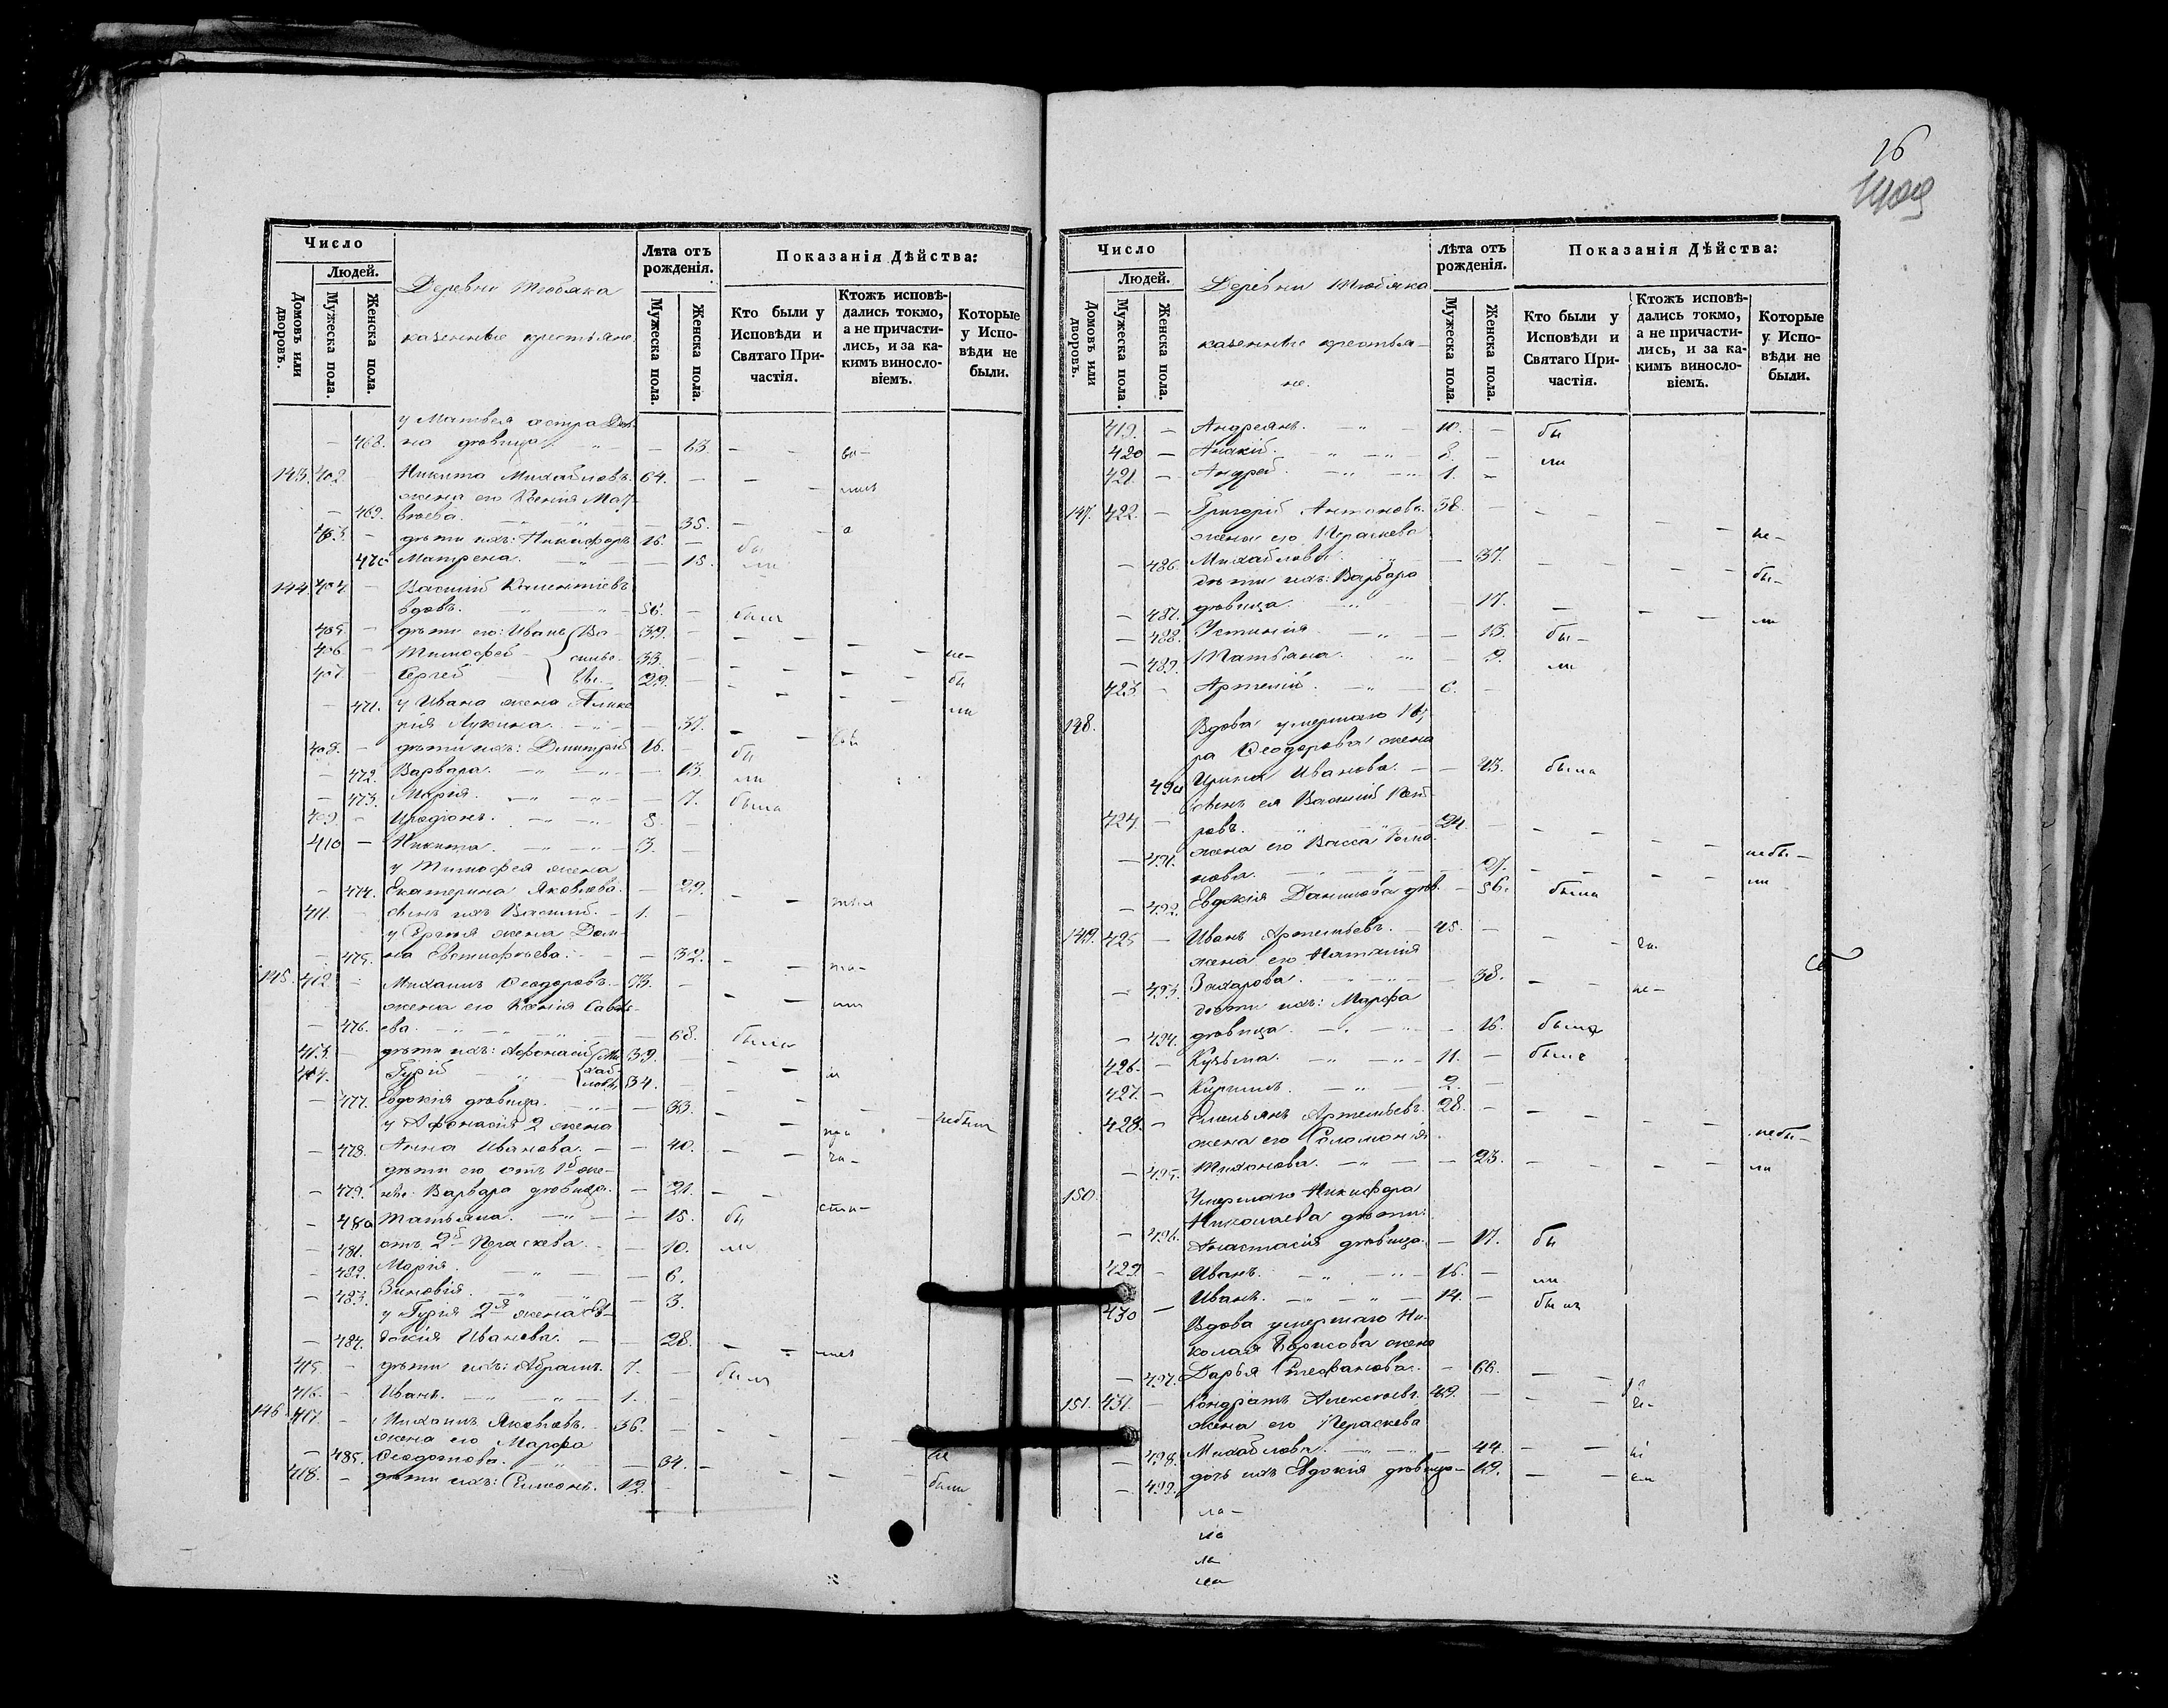 Число
Людей.
Домовъ или дворовъ.
Мужеска пола.
Женска пола.
Деревни Тюбяка
казенные крестьяне.
Лѣта отъ рожденія.
Мужеска пола.
Женска пола.
Показанія Дѣйства:
Кто были у Исповѣди и Святаго Причастія.
Ктожъ исповѣдались токмо, а не причастились, и за какимъ винословіемъ.
Которые у Исповѣди не были.
у Матвея сестра
— 468. на дѣвица — 13.
143. 402. — Никита Михайловъ. 64. —
жена его Ксенія Мат-
— 469. вѣева. — 35.
403. — дѣти ихъ: Никифоръ 16. — бы
470 Матрена. — 15. ли
144 404. — Василій
вдовъ. — 56. — былъ
405. — дѣти его: Иванъ Ва- 39. —
406 — Тимофей — силье- 33. — не-
407 — Сергей — вы. — 29. — бы
— 471. у Ивана жена Глике ли
рія Лукина. — 37.
408. — дѣти ихъ: Дмитрій 16. — бы
— 472. Варвара. — 13. ли
— 473. Марія. — 7. была
409 — Иродіонъ. — 5. —
410 — Никита. — 3. —
у Тимофея жена
— 474. Екатерина Яковлева. — 29.
411. — сынъ ихъ Василій. — 1. —
у Сергея жена Дом-
— 475. на Евстифѣева. — 32.
145. 412 — Михаилъ Ѳеодоровъ. — 73. —
жена его Ксенія Савель-
— 476. ева. — 68. была
413. — дѣти ихъ: Афонасій Ми 39. —
414. Гурій — хай- ловы 34. —
— 477. Евдокія дѣвица. — 33. — небыли
у Афонасія 2 жена
— 478. Анна Иванова. — 40.
дѣти его отъ 1й же-
— 479. ны: Варвара дѣвица. — 21. —
— 480 Татьяна. — 15. бы
— 481. отъ 2й Праскева. — 10. ли
— 482. Марія. — 6.
— 483. Зиновія. — 3.
у Гурія 2я жена Ев-
— 484. докія Иванова. — 28.
415. — дѣти ихъ: Абрамъ. 7. — былъ
416. — Иванъ. — 1. —
146 417. — Михаилъ Яковлевъ. 36. —
жена его Марфа
— 485. Ѳедотова. — 34. — не
418. — дѣти ихъ: Симеонъ. 12. — были
16
Число
Людей.
Домовъ или дворовъ.
Мужеска пола.
Женска пола.
Деревни Тюбяка
казенные крестья-
не.
Лѣта отъ рожденія.
Мужеска пола.
Женска пола.
Показанія Дѣйства:
Кто были у Исповѣди и Святаго Причастія.
Ктожъ исповѣдались токмо, а не причастились, и за какимъ винословіемъ.
Которые у Исповѣди не были.
419. — Андреянъ. — 10. — бы
420 — — 3. — ли
421. — Андрей. — 1. —
147. 422. — Григорій Антоновъ. 38. —
жена его Праскева не-
— 486. Михайлова. — 37. бы-
дѣти ихъ: Варвара
— 487. дѣвица. — 17. — ли
— 488. Устинія — 13. бы-
— 489. Татьяна. — 9. ли
423. — Артемій. — 6. —
148. Вдова умершаго
ра Ѳеодорова жена
490 Ирина Иванова. — 43. была
сынъ ея Василій
424. — ровъ. — 24. —
— 491. жена его Васса Рома-
нова. — 27. — небы-
— 492. Евдокія Данилова дѣв. — 56. была ли
149. 425 — Иванъ Артемьевъ. — 45. —
жена его Наталія
— 493. Захарова. — 38. — не-
дѣти ихъ: Марфа
— 494. дѣвица. — 16. была
426. — Кузьма. — 11. — былъ
427. — Кирилъ. — 2. —
428. — Емельянъ Артемьевъ. 28. — небы-
жена его Соломонія
— 495. Тихонова. — 23. — ли
150. Умершаго Никифора
Николаева дѣти:
— 496. Анастасія дѣвица. — 17. бы
429. — Иванъ. — 16. — ли
430 — Иванъ. — 14. — былъ
Вдова умершаго Ни-
колая Борисова жена
— 497. Дарья Стефанова. — 66. —
151. 431. — Кондратъ Алексѣевъ. 49. —
жена его Праскева
— 498. Михайлова. — 44. —
— 499. дочь ихъ Евдокія дѣвица — 19. —
ла-
ла
ла